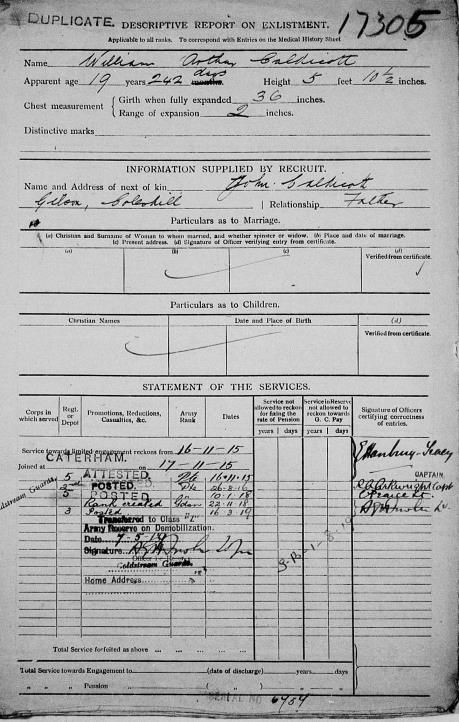 DUPLICATE. DESCRIPTIVE REPORT ON ENLISTMENT. 17305
Applicable to all ranks. To correspond with Entries on the Medical History Sheet
Name William Arthur Caldicott
Apparent age 19 years 242 days months. Height 5 feet 10½ inches.
Chest measurement { Girth when fully expanded 36 inches.
Range of expansion 2 inches.
Distinctive marks
INFORMATION SUPPLIED BY RECRUIT.
Name and Address of next of kin John Caldicott
Gilson, Coleshill | Relationship Father
Particulars as to Marriage.
(a) Christian and Surname of Woman to whom married, and whether spinster or widow. (b) Place and date of marriage.
(c) Present address. (d) Signature of Officer verifying entry from certificate.
(a) (b) (c) (d)
Verified from certificate.
Particulars as to Children.
Christian Names Date and Place of Birth (d)
Verified from certificate.
STATEMENT OF THE SERVICES.
Corps in which served Regl. or Depot Promotions, Reductions, Casualties, &c. Army Rank Dates Service not allowed to reckon for fixing the rate of Pension Service in Reserve not allowed to reckon towards G. C. Pay Signature of Officers certifying correctness of entries.
years days years days
Service towards limited engagement reckons from 16-11-15
CATERHAM.
Joined at on 17-11-15
Coldstream Guards
5 ATTESTED. Pte 16-11-15 CAPTAIN.
3 POSTED. Pte 26-8-16
5 POSTED 10-1-18
Rank created Gdsn 22-11-18
3 Posted 16-3-19
Transferred to Class "Z"
Army Reserve on Demobilization.
Date 7-5-19
Signature
Coldstream Guards.
Home Address
Total Service forfeited as above
Total Service towards Engagement to (date of discharge) years days
" " " Pension ( " ) " "
SERIAL NO 6454